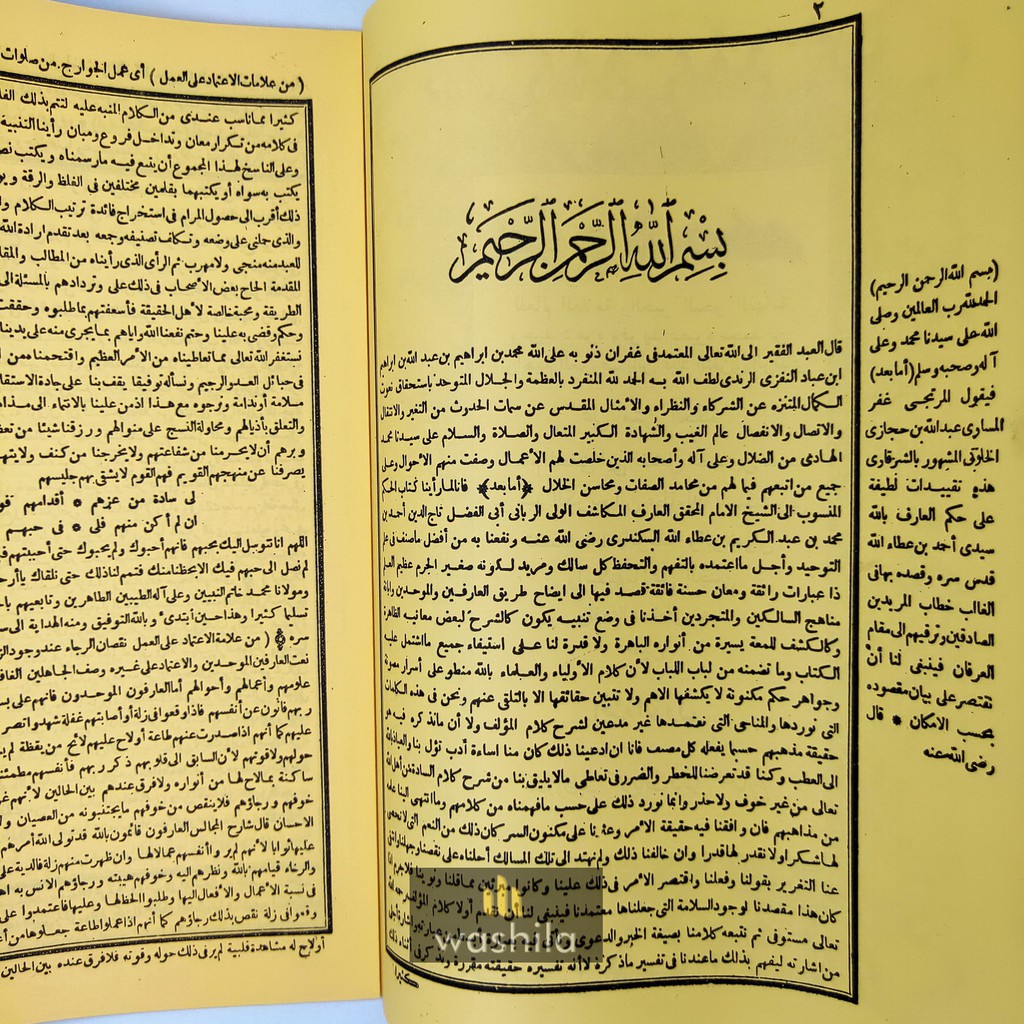 ٢
بِسْمِ ٱللَّهِ ٱلرَّحْمَنِ ٱلرَّحِيمِ
قال العبد الفقير الى الله تعالى المعتمد فى غفران ذنوبه على الله محمد بن ابراهيم بن عبد الله بن ابراهيم
ابن عباد النفزى الرندى لطف الله به الحمد لله المنفرد بالعظمة والجلال المتوحد باستحقاق نعوت
الكمال المتنزه عن الشركاء والنظراء والأمثال المقدس عن سمات الحدوث من التغير والانتقال
والاتصال والانفصال عالم الغيب والشهادة الكبير المتعال والصلاة والسلام على سيدنا محمد
الهادى من الضلال وعلى آله وأصحابه الذين خلصت لهم الأعمال وصفت منهم الأحوال وعلى
جميع من اتبعهم فيما لهم من محامد الصفات ومحاسن الخلال ﴿أما بعد﴾ فانا لما رأينا كتاب الحكم
المنسوب الى الشيخ الامام المحقق العارف المكاشف الولى الربانى أبى الفضل تاج الدين أحمد بن
محمد بن عبد الكريم بن عطاء الله السكندرى رضى الله عنه ونفعنا به من أفضل ما صنف فى علم
التوحيد وأجل ما اعتمده بالتفهم والتحفظ كل سالك ومريد لكونه صغير الجرم عظيم العلم
ذا عبارات رائقة ومعان حسنة فائقة قصد فيها الى ايضاح طريق العارفين والموحدين وابانة
مناهج السالكين والمتجردين أخذنا فى وضع تنبيه يكون كالشرح لبعض معانيه الظاهرة
وكالكشف للمعة يسيرة من أنواره الباهرة ولا قدرة لنا على استيفاء جميع ما اشتمل عليه
الكتاب وما تضمنه من لباب اللباب لأن كلام الأولياء والعلماء بالله منطو على أسرار مصونة
وجواهر حكم مكنونة لا يكشفها الاهم ولا تتبين حقائقها الا بالتلقى عنهم ونحن فى هذه الكلمات
التى نوردها والمناحى التى نعتمدها غير مدعين لشرح كلام المؤلف ولا أن ما نذكره فيه هو
حقيقة مذهبهم حسبما يفعله كل مصنف فانا ان ادعينا ذلك كان منا اساءة أدب تؤل بنا والعياذ بالله
الى العطب وكنا قد تعرضنا للخطر والضرر فى تعاطى ما لا يليق بنا من شرح كلام السادة من أهل الله
تعالى من غير خوف ولا حذر وانما نورد ذلك على حسب ما فهمناه من كلامهم وما انتهى الينا علمه
من مذاهبهم فان وافقنا فيه حقيقة الأمر وعثرنا على مكنون السر كان ذلك من النعم التى لا نحصى
لها شكرا ولا نقدر لها قدرا وان خالفنا ذلك ولم نهتد الى تلك المسالك أحلناه على نقصنا وجهلنا وانتفى
عنا التغرير بقولنا وفعلنا واقتصر الأمر فى ذلك علينا وكانوا مبرئين مما قلنا ونوينا فلا جرم اذا
كان هذا مقصدنا لوجود السلامة التى جعلناها معتمدنا فينبغى لنا أن أولا كلام المؤلف رحمه الله
تعالى مستوفى ثم نتبعه كلامنا بصيغة الخبر والدعوى
من اشارته ليفهم بذلك ما عندنا فى تفسير ما ذكره لا أنه تفسيره حقيقته مقررة ونذكر فى أثناء ذلك
كثيرا
(بسم الله الرحمن الرحيم)
الحمد لله رب العالمين وصلى
الله على سيدنا محمد وعلى
آله وصحبه وسلم (أما بعد)
فيقول المرتجى غفر
المساوى عبد الله بن حجازى
الخلوتى المشهور بالشرقاوى
هذه تقييدات لطيفة
على حكم العارف بالله
سيدى أحمد بن عطاء الله
قدس سره وقصده بها فى
الغالب خطاب المريدين
الصادقين وترقيهم الى مقام
العرفان فينبغى لنا أن
نقتصر على بيان مقصوده
بحسب الامكان * قال
رضى الله عنه
(من علامات الاعتماد على العمل) أى عمل الجوارح من صلوات
كثيرا مما ناسب عندى من الكلام المنبه عليه لتتم بذلك
فى كلامه من تكرار معان وتداخل فروع ومبان رأينا التنبيه
وعلى الناسخ لهذا المجموع أن يتبع فيه ما رسمناه ويكتب
يكتب به سواه أو يكتبهما بقلمين مختلفين فى الغلظ والرقة
ذلك أقرب الى حصول المرام فى استخراج فائدة ترتيب الكلام
والذى حملنى على وضعه وتكلف تصنيفه وجمعه بعد تقدم ارادة الله
للعبد منه منجى ولا مهرب ثم الرأى الذى رأيناه من المطالب
المقدمة الحاح بعض الأصحاب فى ذلك على وتردادهم بالمسئلة الى
الطريقة ومحبة خالصة لأهل الحقيقة فأسعفتهم بما طلبوه وحققت
وحكم وقضى به علينا وحتم نفعنا الله واياهم بما يجرى منه على يدينا
نستغفر الله تعالى مما تعاطيناه من الأمر العظيم واقتحمناه من
فى حبائل العدو الرجيم ونسأله توفيقا يقف بنا على جادة
ملامة أو ندامة ونرجوه مع هذا اذ من علينا بالانتماء الى
والتعلق بأذيالهم ومحاولة النسج على منوالهم ورزقنا شيئا من
وبرهم أن لا يحرمنا من شفاعتهم ولا يخرجنا من كنف
يصرفنا عن منهجهم القويم فهم القوم لا يشقى بهم جليسهم
لى سادة من عزهم * أقدامهم
ان لم أكن منهم فلى * فى حبهم
اللهم انا نتوسل اليك بحبهم فانهم أحبوك ولم يحبوك حتى أحببتهم
لم نصل الى حبهم فيك الا بحظنا منك فتمم لنا ذلك حتى نلقاك
ومولانا محمد خاتم النبيين وعلى آله الطيبين الطاهرين وتابعيهم
تسليما كثيرا وهذا حين أبتدئ وبالله التوفيق ومنه الهداية الى
سره (من علامة الاعتماد على العمل نقصان الرجاء عند وجود
نعت العارفين الموحدين والاعتماد على غيره وصف الجاهلين
علومهم وأعمالهم وأحوالهم أما العارفون الموحدون فانهم على
ربهم فانون عن أنفسهم فاذا وقعوا فى زلة أو أصابتهم غفلة شهدوا
عليهم كما أنهم اذا صدرت عنهم طاعة أو لاح عليهم لائح من يقظة لم
حولهم ولا قوتهم لأن السابق الى قلوبهم ذكر ربهم فأنفسهم مطمئنة
ساكنة بما لاح لها من أنواره ولا فرق عندهم بين الحالين لأنهم
خوفهم ورجاؤهم فلا ينقص من خوفهم ما يجتنبونه من العصيان
الاحسان قال شارح المجالس العارفون قائمون بالله قد تولى الله أمرهم
عليها ثوابا لأنهم لم يروا أنفسهم عمالا لها وان ظهرت منهم زلة فالدية على
والرخاء قيامهم بالله ونظرهم اليه وخوفهم هيبته ورجاؤهم الانس به
فى نسبة الأعمال والأفعال اليها وطلبوا الحظ لها وعليها فاعتمدوا على
وقعوا فى زلة نقص بذلك رجاؤهم كما أنهم اذا عملوا طاعة جعلوها من
أو لاح له مشاهدة قلبية لم ير فى ذلك حوله وقوته فلا فرق عنده بين الحالين
washila